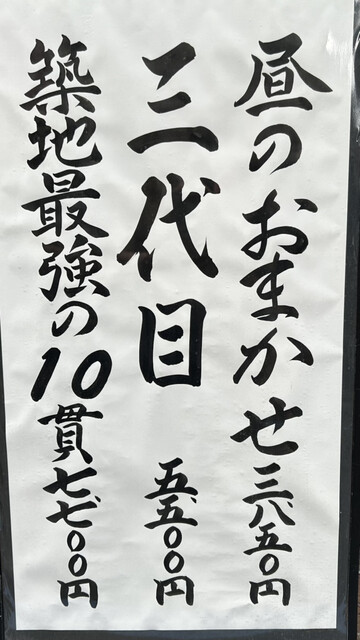 昼のおまかせ 三八五〇円
三代目 五五〇〇円
築地最強の10貫 七七〇〇円